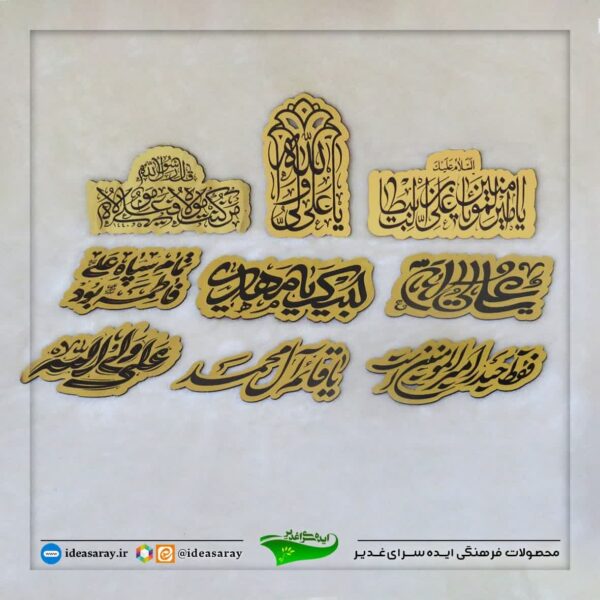 قال رسول الله
من کنت مولاه فهذا علی مولاه
علی ولی الله
السلام علیک
یا امیرالمومنین علی بن ابیطالب
تا سپاه علی
فاطمه بود
لبیک یا مهدی
علی ولی الله
یا قائم آل محمد
فقط حیدر امیرالمومنین است
ideasaray.ir
@ideasaray
ایده سرای غدیر
محصولات فرهنگی ایده سرای غدیر